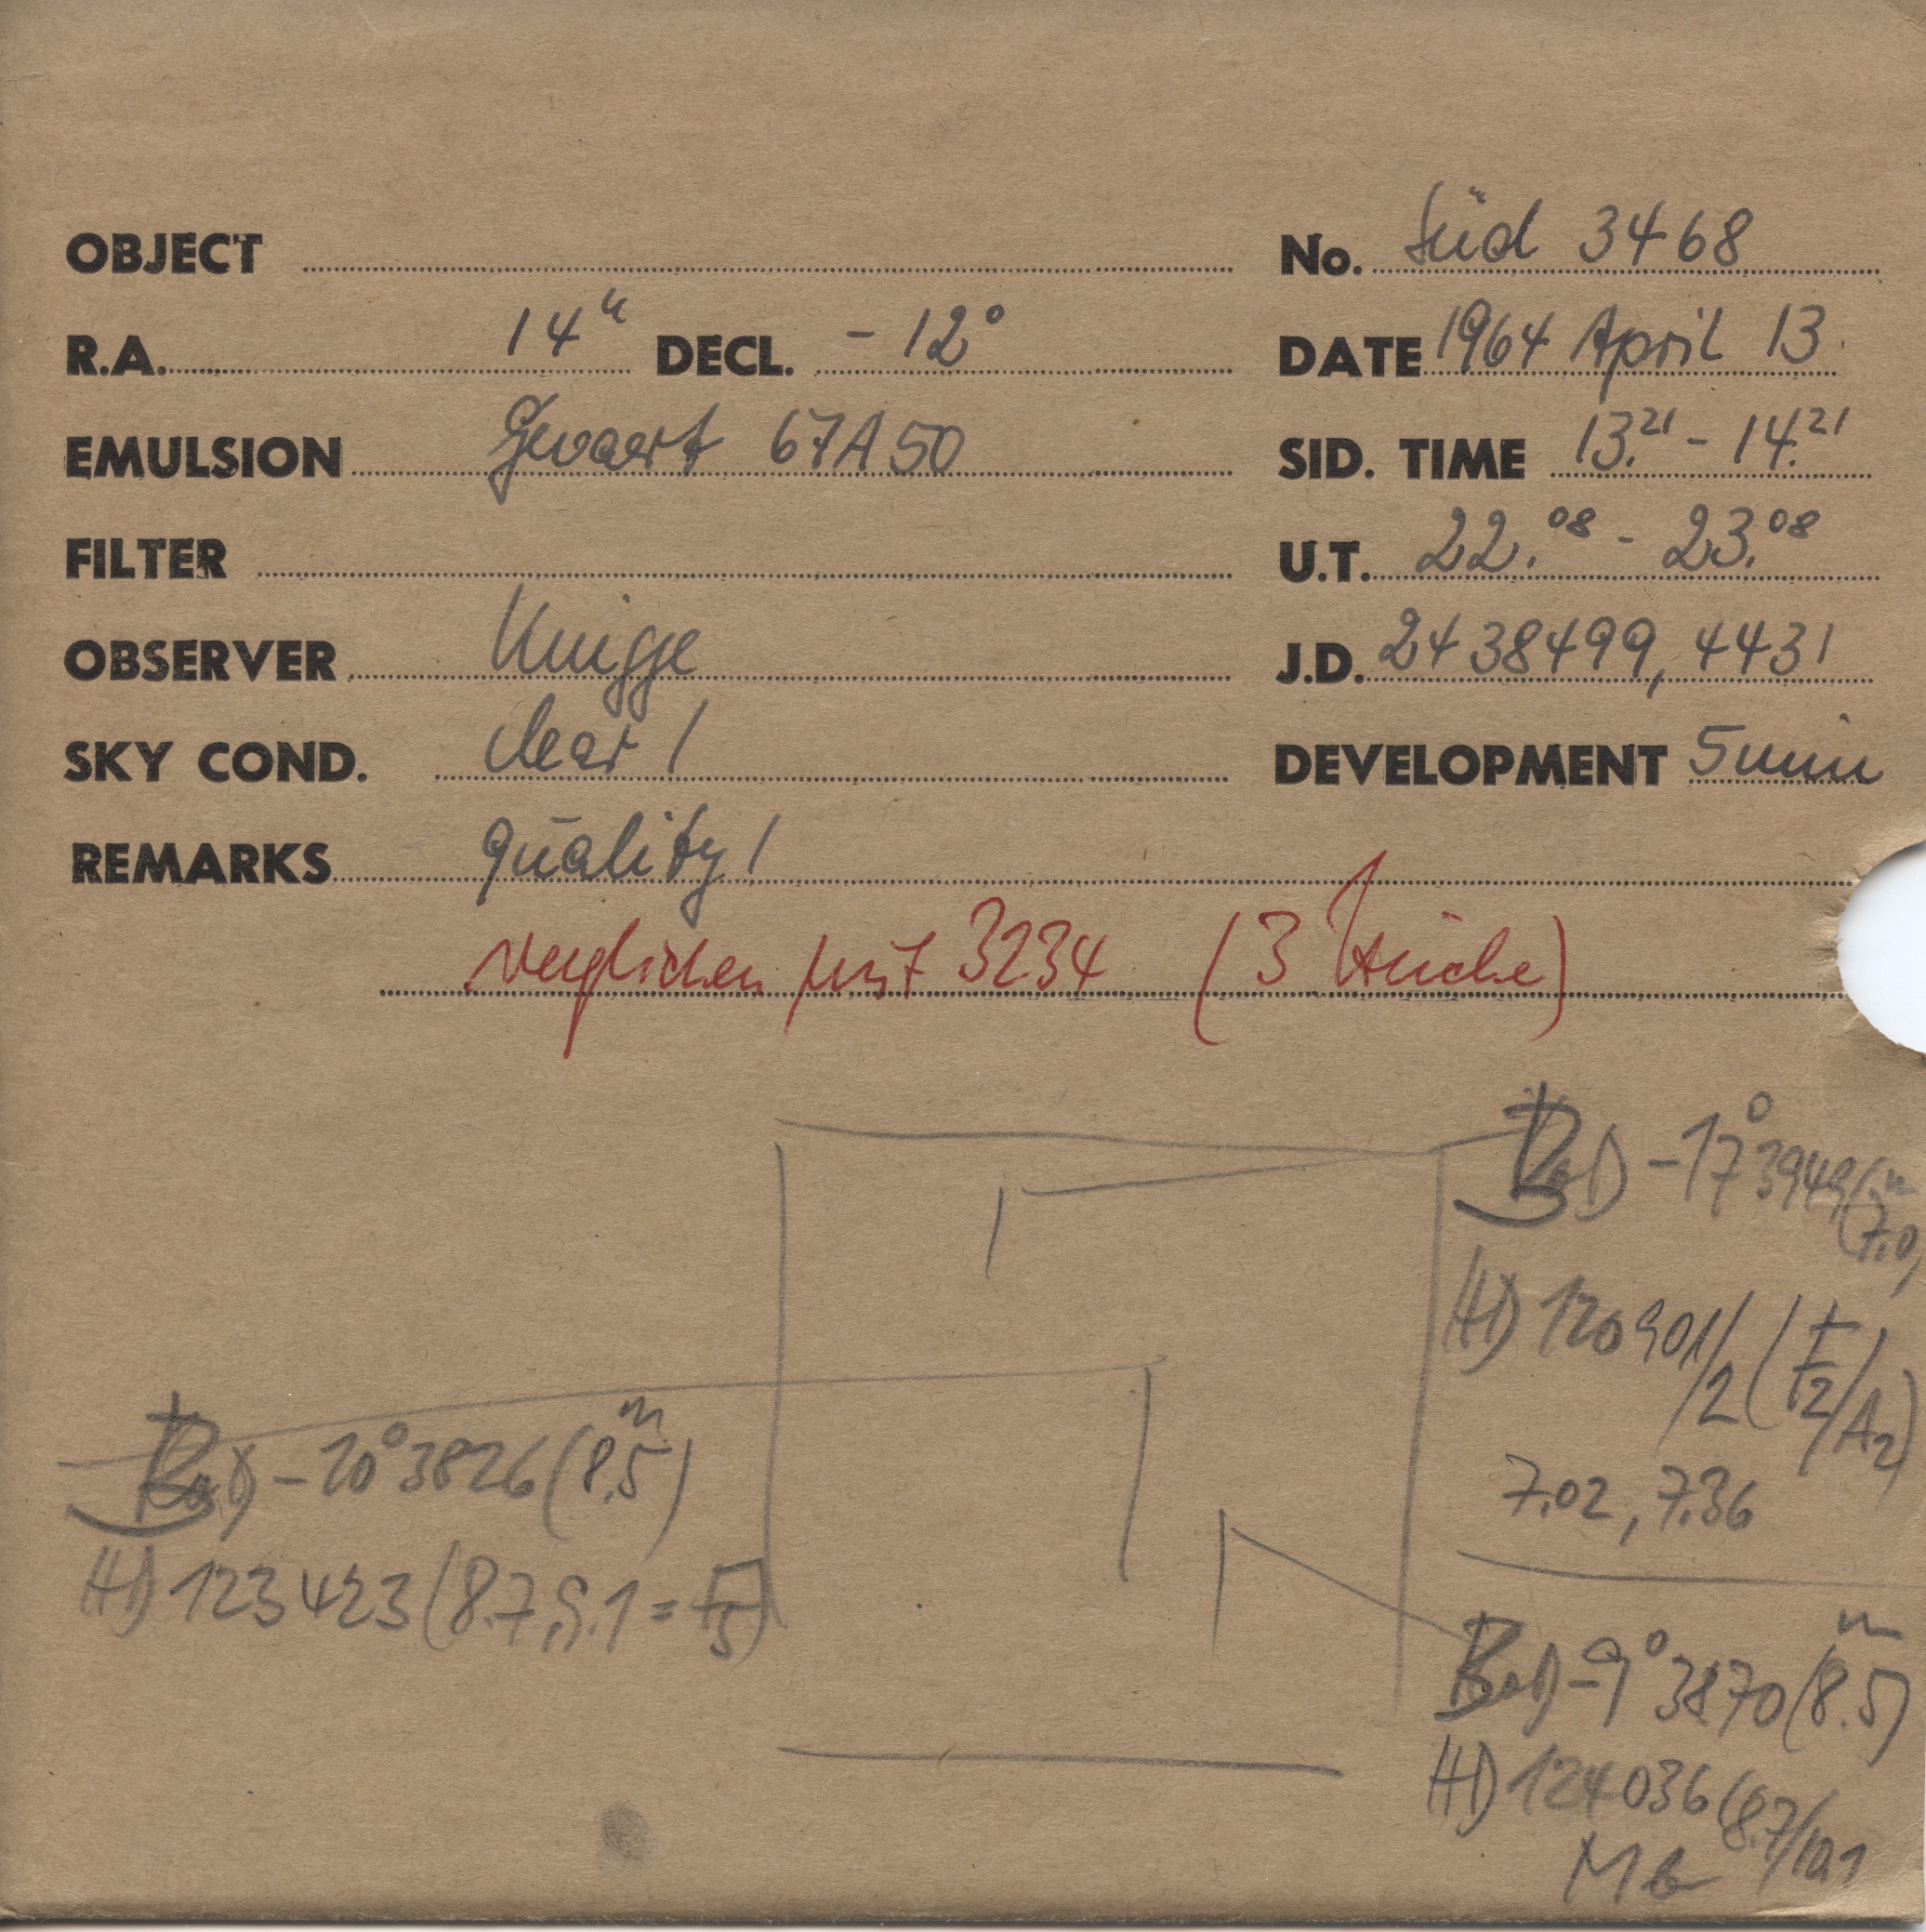 OBJECT No. Süd 3468
R.A. 14ʰ DECL. -12° DATE 1964 April 13.
EMULSION Gevaert 67A50 SID. TIME 13.²¹ - 14.²¹
FILTER U.T. 22.⁰⁸ - 23.⁰⁸
OBSERVER Knigge J.D. 2438499,4431
SKY COND. clear 1 DEVELOPMENT 5 min
REMARKS quality 1
verglichen mit 3234 (3 Stücke)
BD -17° 3949 (7.0ᵐ)
HD 120901/2 (F2/A2)
7.02, 7.36
BD -10° 3826 (8.5ᵐ)
HD 123423 (8.7, 9.1 = F5)
BD -9° 3870 (8.5ᵐ)
HD 124036 (8.7/10.1
Mb